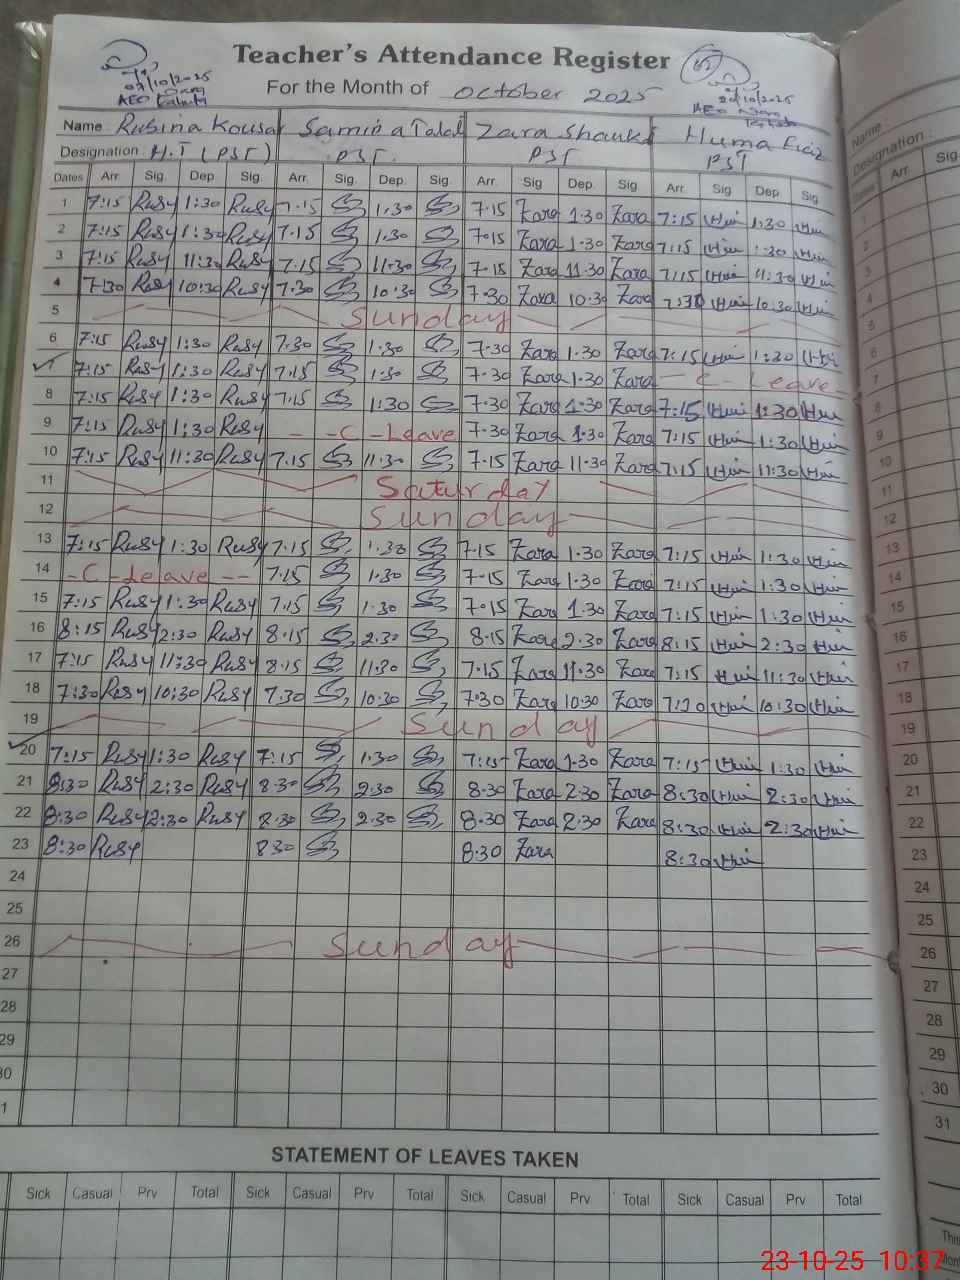 Teacher's Attendance Register
For the Month of October 2025
07/10/2025
AEO
20/10/2025
AEO
Name: Rubina Kousar Samina Talal Zara Shouket Huma Fiaz
Designation: H.T (PST) PST. PST PST
Dates Arr. Sig. Dep. Sig. Arr. Sig. Dep. Sig. Arr. Sig Dep. Sig Arr. Sig Dep. Sig
1 7:15 RuSy 1:30 RuSy 7.15 1.30 7.15 Zara 1.30 Zara 7:15 Hui 1:30 Hui
2 7:15 RuSy 1:30 RuSy 7.15 1.30 7.15 Zara 1.30 Zara 7:15 Hui 1:30 Hui
3 7:15 RuSy 11:30 RuSy 7.15 11.30 7.15 Zara 11.30 Zara 7:15 Hui 11:30 Hui
4 7:30 RuSy 10:30 RuSy 7.30 10.30 7.30 Zara 10.30 Zara 7:30 Hui 10:30 Hui
5 Sunday
6 7:15 RuSy 1:30 RuSy 7.30 1.30 7.30 Zara 1.30 Zara 7:15 Hui 1:30 Hui
7 7:15 RuSy 1:30 RuSy 7.15 1.30 7.30 Zara 1.30 Zara - C - Leave -
8 7:15 RuSy 1:30 RuSy 7.15 1:30 7.30 Zara 1.30 Zara 7:15 Hui 1:30 Hui
9 7:15 RuSy 1:30 RuSy - - C - Leave 7.30 Zara 1.30 Zara 7:15 Hui 1:30 Hui
10 7:15 RuSy 11:30 RuSy 7.15 11.30 7.15 Zara 11.30 Zara 7:15 Hui 11:30 Hui
11 Saturday
12 Sunday
13 7:15 RuSy 1:30 RuSy 7.15 1.30 7.15 Zara 1.30 Zara 7:15 Hui 1:30 Hui
14 - C - Leave - - 7.15 1.30 7.15 Zara 1.30 Zara 7:15 Hui 1:30 Hui
15 7:15 RuSy 1:30 RuSy 7.15 1.30 7.15 Zara 1.30 Zara 7:15 Hui 1:30 Hui
16 8:15 RuSy 2:30 RuSy 8.15 2.30 8.15 Zara 2.30 Zara 8:15 Hui 2:30 Hui
17 7:15 RuSy 11:30 RuSy 8.15 11.30 7.15 Zara 11.30 Zara 7:15 Hui 11:30 Hui
18 7:30 RuSy 10:30 RuSy 7.30 10.30 7.30 Zara 10.30 Zara 7:30 Hui 10:30 Hui
19 Sunday
20 7:15 RuSy 1:30 RuSy 7:15 1.30 7:15 Zara 1.30 Zara 7:15 Hui 1:30 Hui
21 8:30 RuSy 2:30 RuSy 8.30 2.30 8.30 Zara 2.30 Zara 8:30 Hui 2:30 Hui
22 8:30 RuSy 2:30 RuSy 8.30 2.30 8.30 Zara 2.30 Zara 8:30 Hui 2:30 Hui
23 8:30 RuSy 830 8:30 Zara 8:30 Hui
24
25
26 Sunday
27
28
29
30
31
STATEMENT OF LEAVES TAKEN
Sick Casual Prv Total Sick Casual Prv Total Sick Casual Prv Total Sick Casual Prv Total
Name :
Designation :
Dates Arr. Sig.
1
2
3
4
5
6
7
8
9
10
11
12
13
14
15
16
17
18
19
20
21
22
23
24
25
26
27
28
29
30
31
This
Mon
23-10-25 10:37